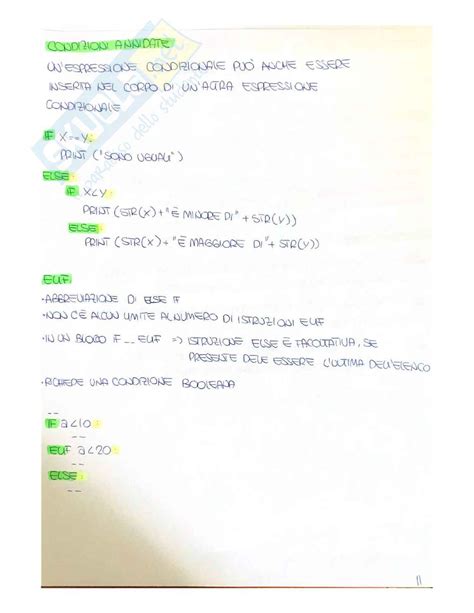 CONDIZIONI ANNIDATE
UN'ESPRESSIONE CONDIZIONALE PUÒ ANCHE ESSERE
INSERITA NEL CORPO DI UN'ALTRA ESPRESSIONE
CONDIZIONALE
IF X==Y:
PRINT ("SONO UGUALI")
ELSE:
IF X<Y:
PRINT (STR(X)+"È MINORE DI"+STR(Y))
ELSE:
PRINT (STR(X)+"È MAGGIORE DI"+STR(Y))
ELIF:
•ABBREVIAZIONE DI ELSE IF
•NON C'È ALCUN LIMITE AL NUMERO DI ISTRUZIONI ELIF
•IN UN BLOCCO IF __ ELIF => ISTRUZIONE ELSE È FACOLTATIVA, SE
PRESENTE DEVE ESSERE L'ULTIMA DELL'ELENCO
•RICHIEDE UNA CONDIZIONE BOOLEANA
--
IF a<10:
--
ELIF a<20:
--
ELSE:
--
11